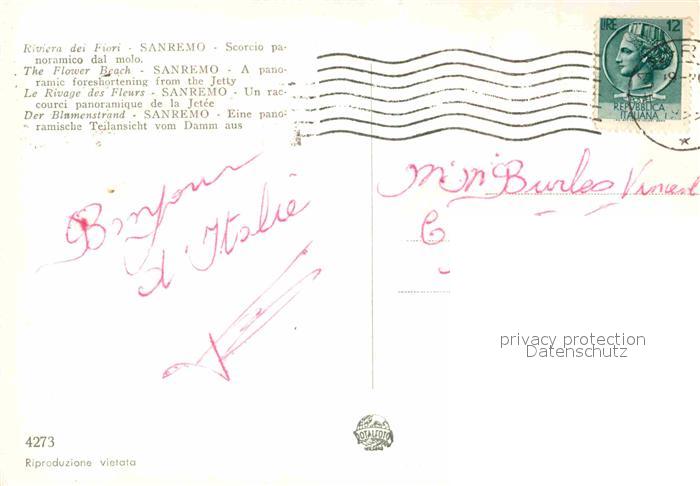 Riviera dei Fiori - SANREMO - Scorcio pa-
noramico dal molo.
The Flower Beach - SANREMO - A pano-
ramic foreshortening from the Jetty
Le Rivage des Fleurs - SANREMO - Un rac-
courci panoramique de la Jetée
Der Blumenstrand - SANREMO - Eine pano-
ramische Teilansicht vom Damm aus
LIRE 12
REPVBBLICA
ITALIANA
Bonjour
d'Italie
Vincent
privacy protection
Datenschutz
4273
Riproduzione vietata